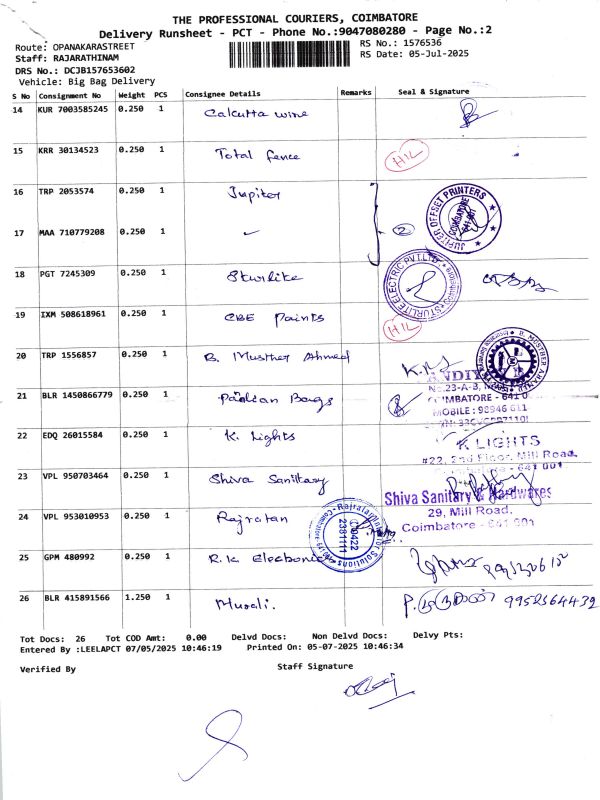 THE PROFESSIONAL COURIERS, COIMBATORE
Delivery Runsheet - PCT - Phone No.:9047080280 - Page No.:2
Route: OPANAKARASTREET
RS No.: 1576536
Staff: RAJARATHINAM
RS Date: 05-Jul-2025
DRS No.: DCJB157653602
Vehicle: Big Bag Delivery
S No Consignment No Weight PCS Consignee Details Remarks Seal & Signature
14 KUR 7003585245 0.250 1 Calcutta wine
15 KRR 30134523 0.250 1 Total fence HIL
16 TRP 2053574 0.250 1 Jupiter
JUPITER OFFSET PRINTERS
COIMBATORE
641 001
17 MAA 710779208 0.250 1 2
18 PGT 7245309 0.250 1 Sturlite
STURLITE ELECTRIC PVT.LTD
19 IXM 508618961 0.250 1 CBE Paints HIL
20 TRP 1556857 0.250 1 B. Musther Ahmed
B. MUSTHER AHAMED
21 BLR 1450866779 0.250 1 Pandian Bags
23-A-B,
COIMBATORE - 641 0
MOBILE : 98946 611
22 EDQ 26015584 0.250 1 K. Lights
K LIGHTS
#22, 2nd Floor, Mill Road,
641 001
23 VPL 950703464 0.250 1 Shiva Sanittary
Shiva Sanitary & Hardwares
29, Mill Road,
Coimbatore - 641 001
24 VPL 953010953 0.250 1 Rajratan
0422
2381111
25 GPM 480992 0.250 1 R.K. Electronic
26 BLR 415891566 1.250 1 Murali. P. 9952564439
Tot Docs: 26 Tot COD Amt: 0.00 Delvd Docs: Non Delvd Docs: Delvy Pts:
Entered By :LEELAPCT 07/05/2025 10:46:19 Printed On: 05-07-2025 10:46:34
Verified By Staff Signature